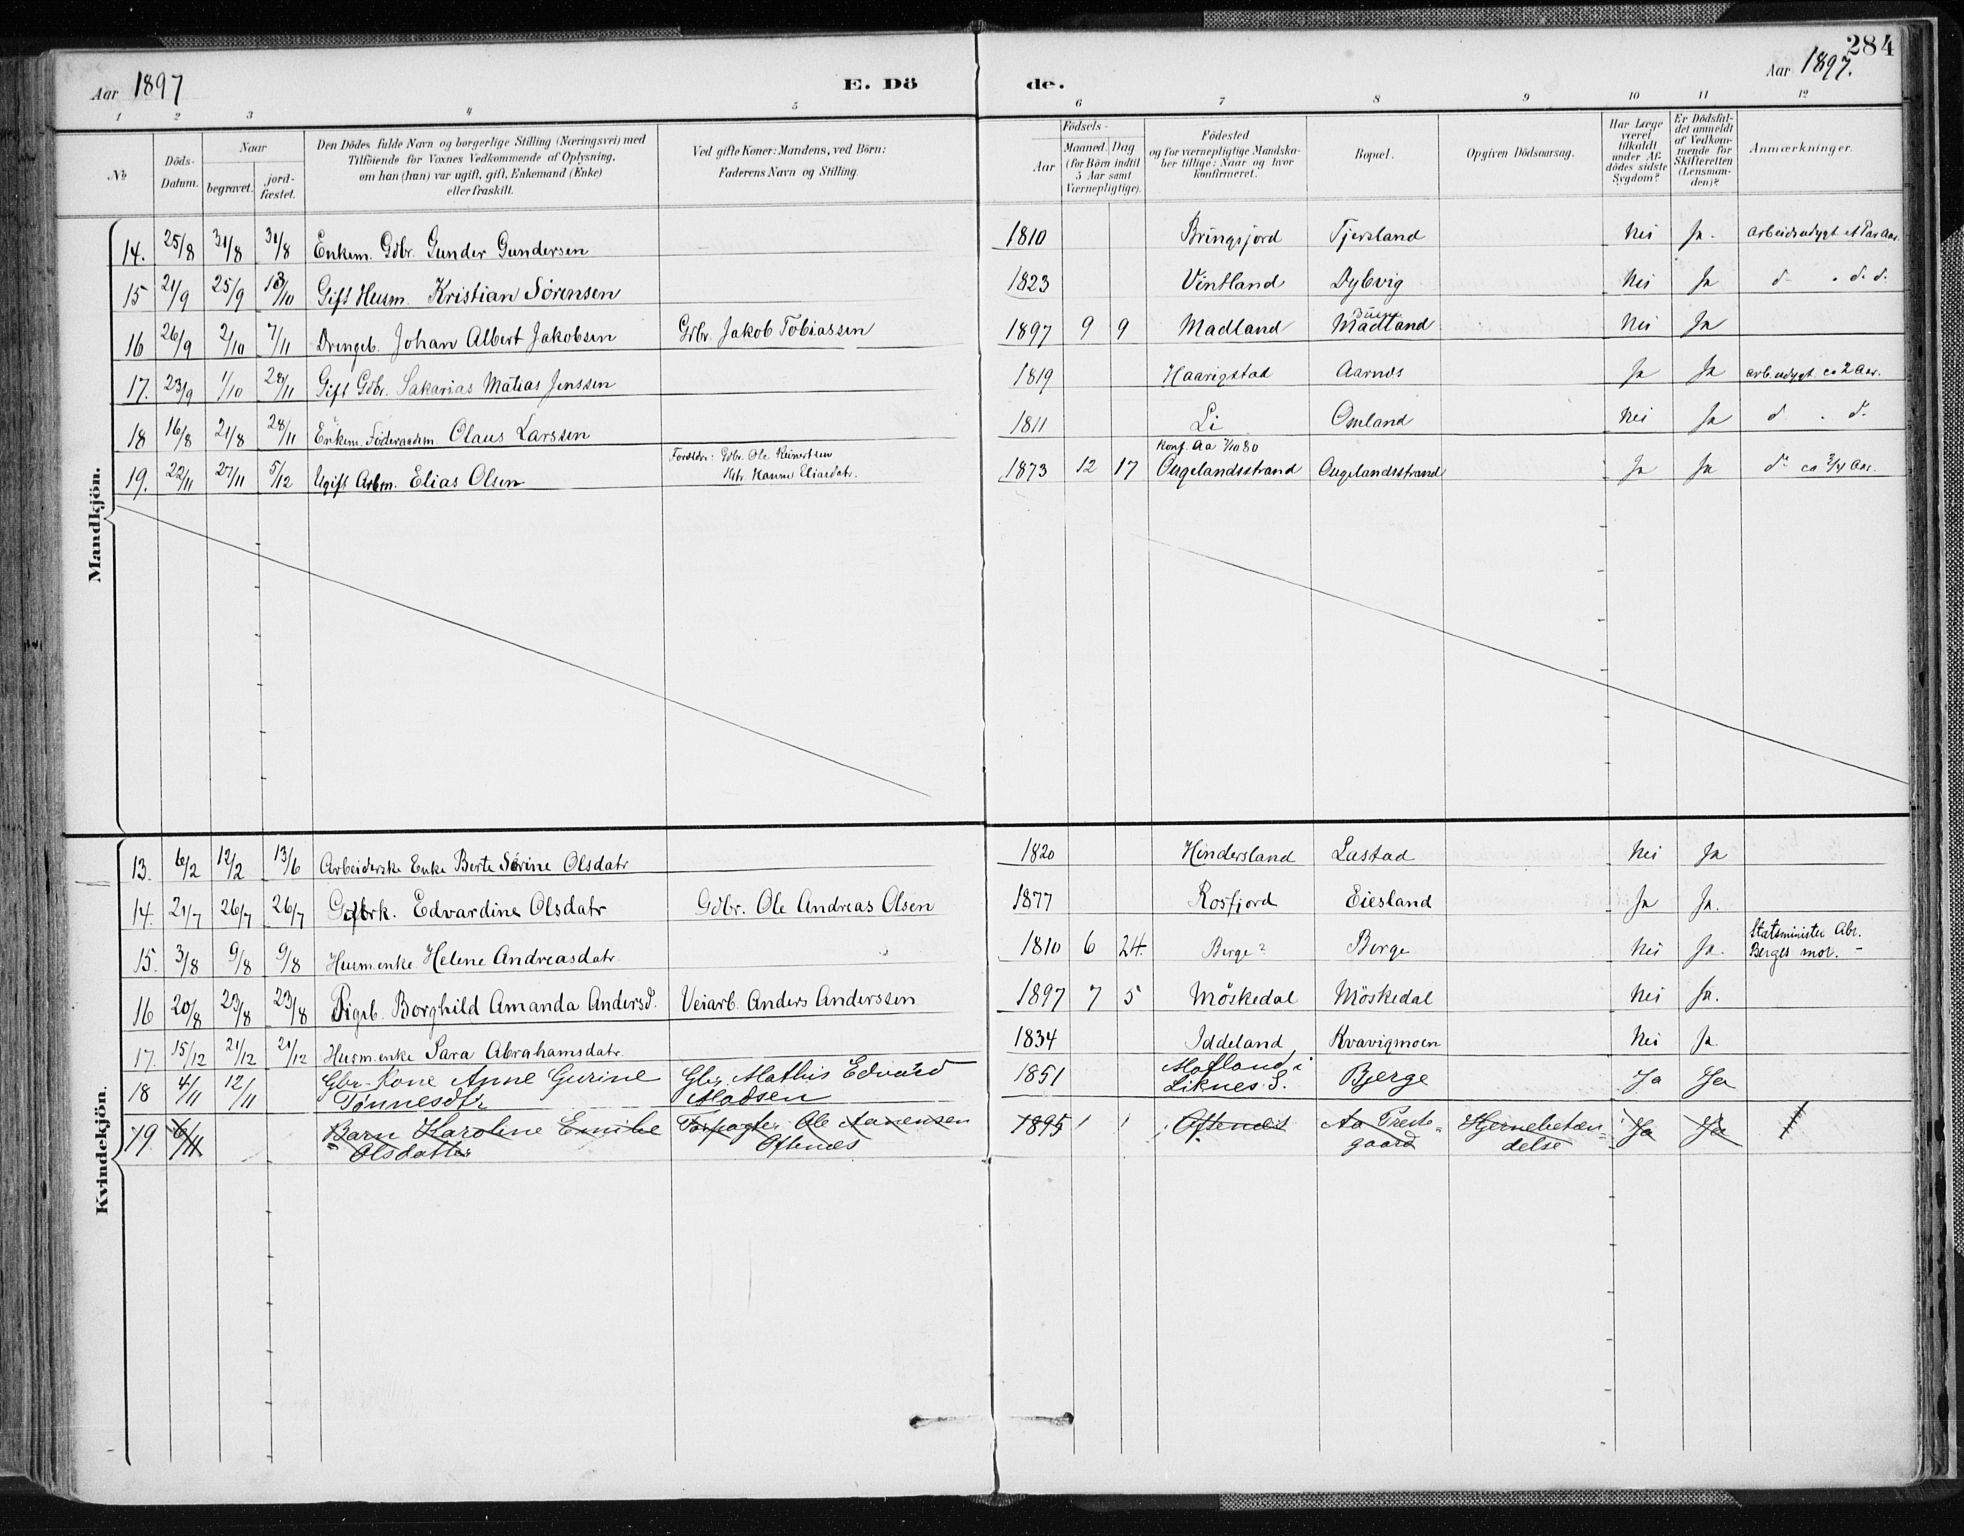 284
Aar 1897
E. Dö
de.
Aar 1897.
1 2 3 4 5 6 7 8 9 10 11 12
No
Döds-Datum.
Naar
begravet.
jord-fæstet.
Den Dödes fulde Navn og borgerlige Stilling (Næringsvei) med
Tilföiende for Voxnes Vedkommende af Oplysning,
om han (hun) var ugift, gift, Enkemand (Enke)
eller fraskilt.
Ved gifte Koner: Mandens, ved Börn:
Faderens Navn og Stilling.
Födsels-
Aar
Maaned. Dag
(for Börn indtil
5 Aar samt
Værnepligtige).
Födested
og for værnepligtige Mandska-
ber tillige: Naar og hvor
konfirmeret.
Bopæl.
Opgiven Dödsaarsag.
Har Læge
været
tilkaldt
under Af-
dödes sidste
Sygdom?
Er Dödsfal-
det anmeldt
af Vedkom-
mende for
Skifteretten
(Lensman-
den)?
Anmærkninger.
Mandkjön.
14. 25/8 31/8 31/8 Enkem. Gdbr. Gunder Gundersen 1810 Bringsjord Tjersland Nei Ja. arbeidsudygt. et Par Aar.
15 21/9 25/9 13/10 Gift Husm. Kristian Sørensen 1823 Vintland Dybvig Nei Ja d. . d. d.
16 26/9 2/10 7/11 Drengeb. Johan Albert Jakobsen Grbr. Jakob Tobiassen 1897 9 9 Madland Madland Nei Ja
17. 23/9 1/10 28/11 Gift Gdbr. Sakarias Matias Jenssen 1819 Haarigstad Aarnes Ja Ja arb.udygt. ca 2 Aar.
18 16/8 21/8 28/11 Enkem. Föderaadsm Olaus Larssen 1811 Li Omland Nei Ja d . d.
Forældr: Gdbr. Ole Reinertsen
Konf. Aa 7/10 80
19. 22/11 27/11 5/12 Ugift Arbm. Elias Olsen Hanne Eliasdatr. 1873 12 17 Ougelandsstrand Ougelandsstrand Ja Ja d. ca 3/4 Aar.
Kvindekjön.
13. 6/2 12/2 13/6 Arbeiderske Enke Berte Sörine Olsdatr 1820 Hindersland Lastad Nei Ja
14. 21/7 26/7 26/7 Gdbrk. Edvardine Olsdatr Gdbr. Ole Andreas Olsen 1877 Rosfjord Eiesland Ja Ja.
Statsminister Abr.
15. 3/8 9/8 9/8 Husm.enke Helene Andreasdatr. 1810 6 24. Berge? Berge Nei Ja. Berges mor. –
16 20/8 23/8 23/8 Pigeb. Borghild Amanda Andersd. Veiarb. Anders Anderssen 1897 7 5 Möskedal Möskedal Nei Ja.
17. 15/12 21/12 21/12 Husm.enke Sara Abrahamsdatr. 1834 Iddeland Kvavigmoen Nei Ja
18 4/11 12/11 Gbr-Kone Anne Gurine Gbr. Mathis Edvard 1851 i Bjerge Ja Ja
Tønnesdtr Madsen Liknes S.
19. 6/11 Barn Karoline Emilie Forpagter Ole Aanensen 1895 1 1 Oftenæs Aa Preste- Hjernebetæn- Ja Ja
Olsdatter Oftenæs gaard delse